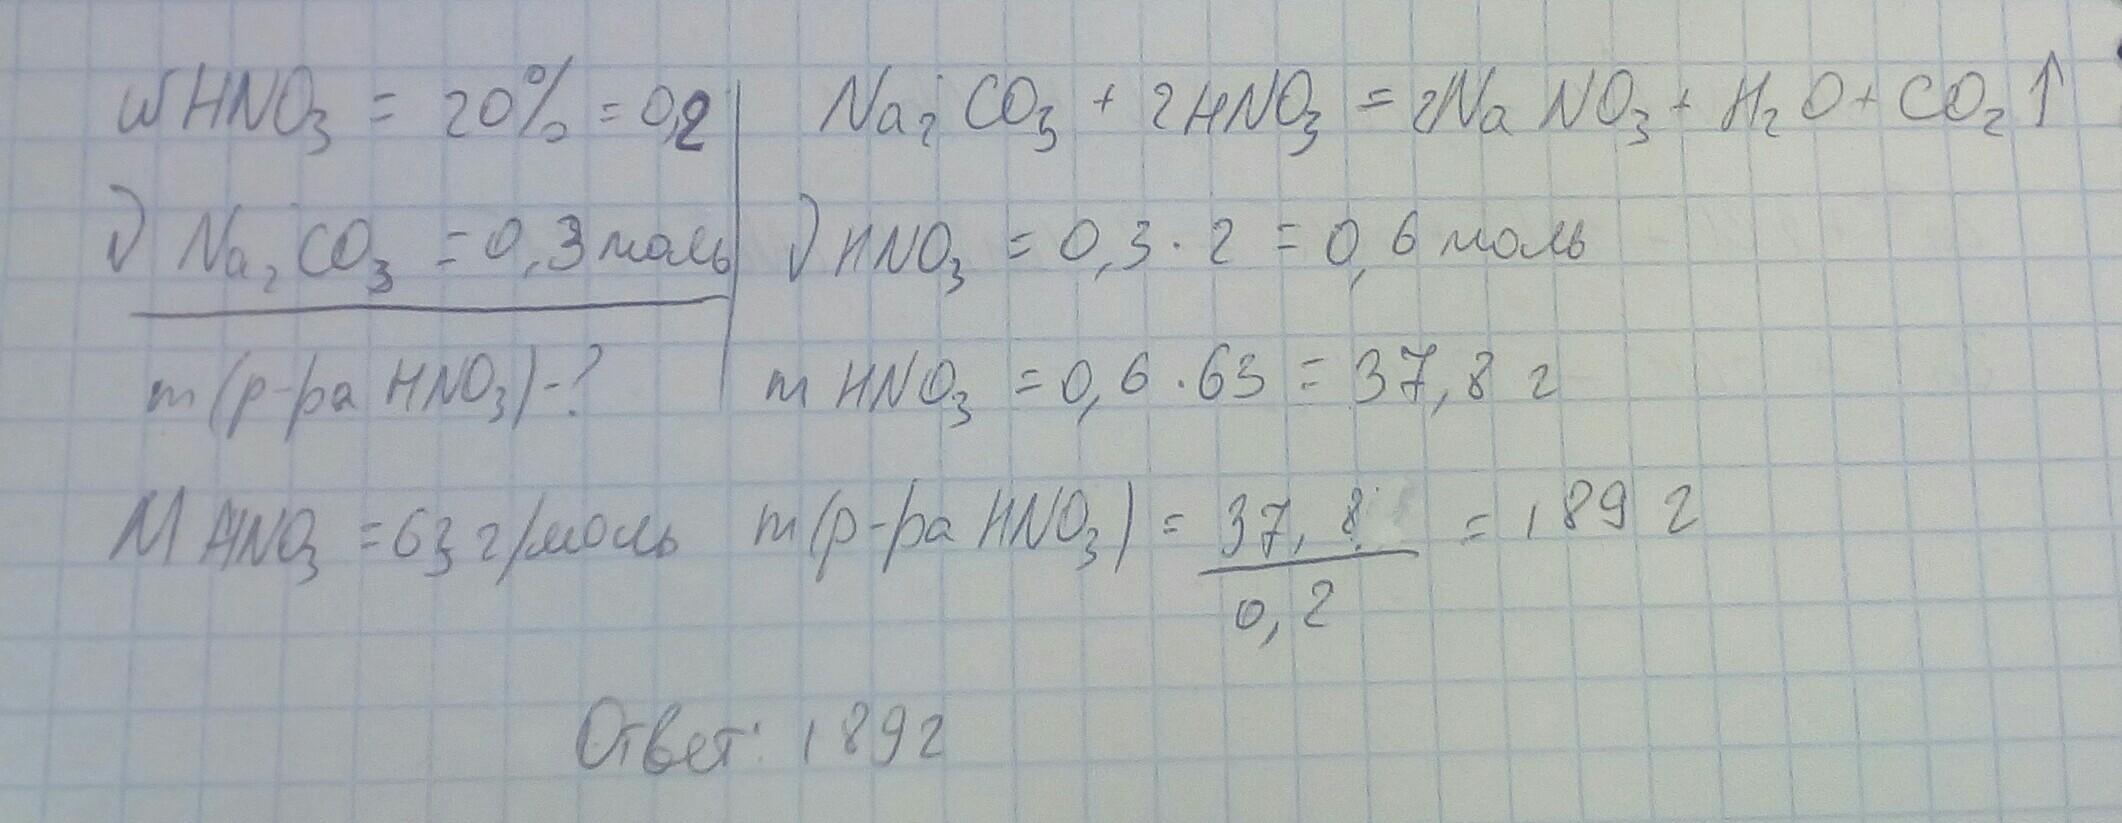 wHNO₃ = 20% = 0,2
ν Na₂CO₃ = 0,3 моль
m(р-ра HNO₃)-?
M HNO₃ = 63 г/моль
Na₂CO₃ + 2HNO₃ = 2NaNO₃ + H₂O + CO₂↑
ν HNO₃ = 0,3 · 2 = 0,6 моль
m HNO₃ = 0,6 · 63 = 37,8 г
m(р-ра HNO₃) = 37,8 / 0,2 = 189 г
Ответ: 189 г